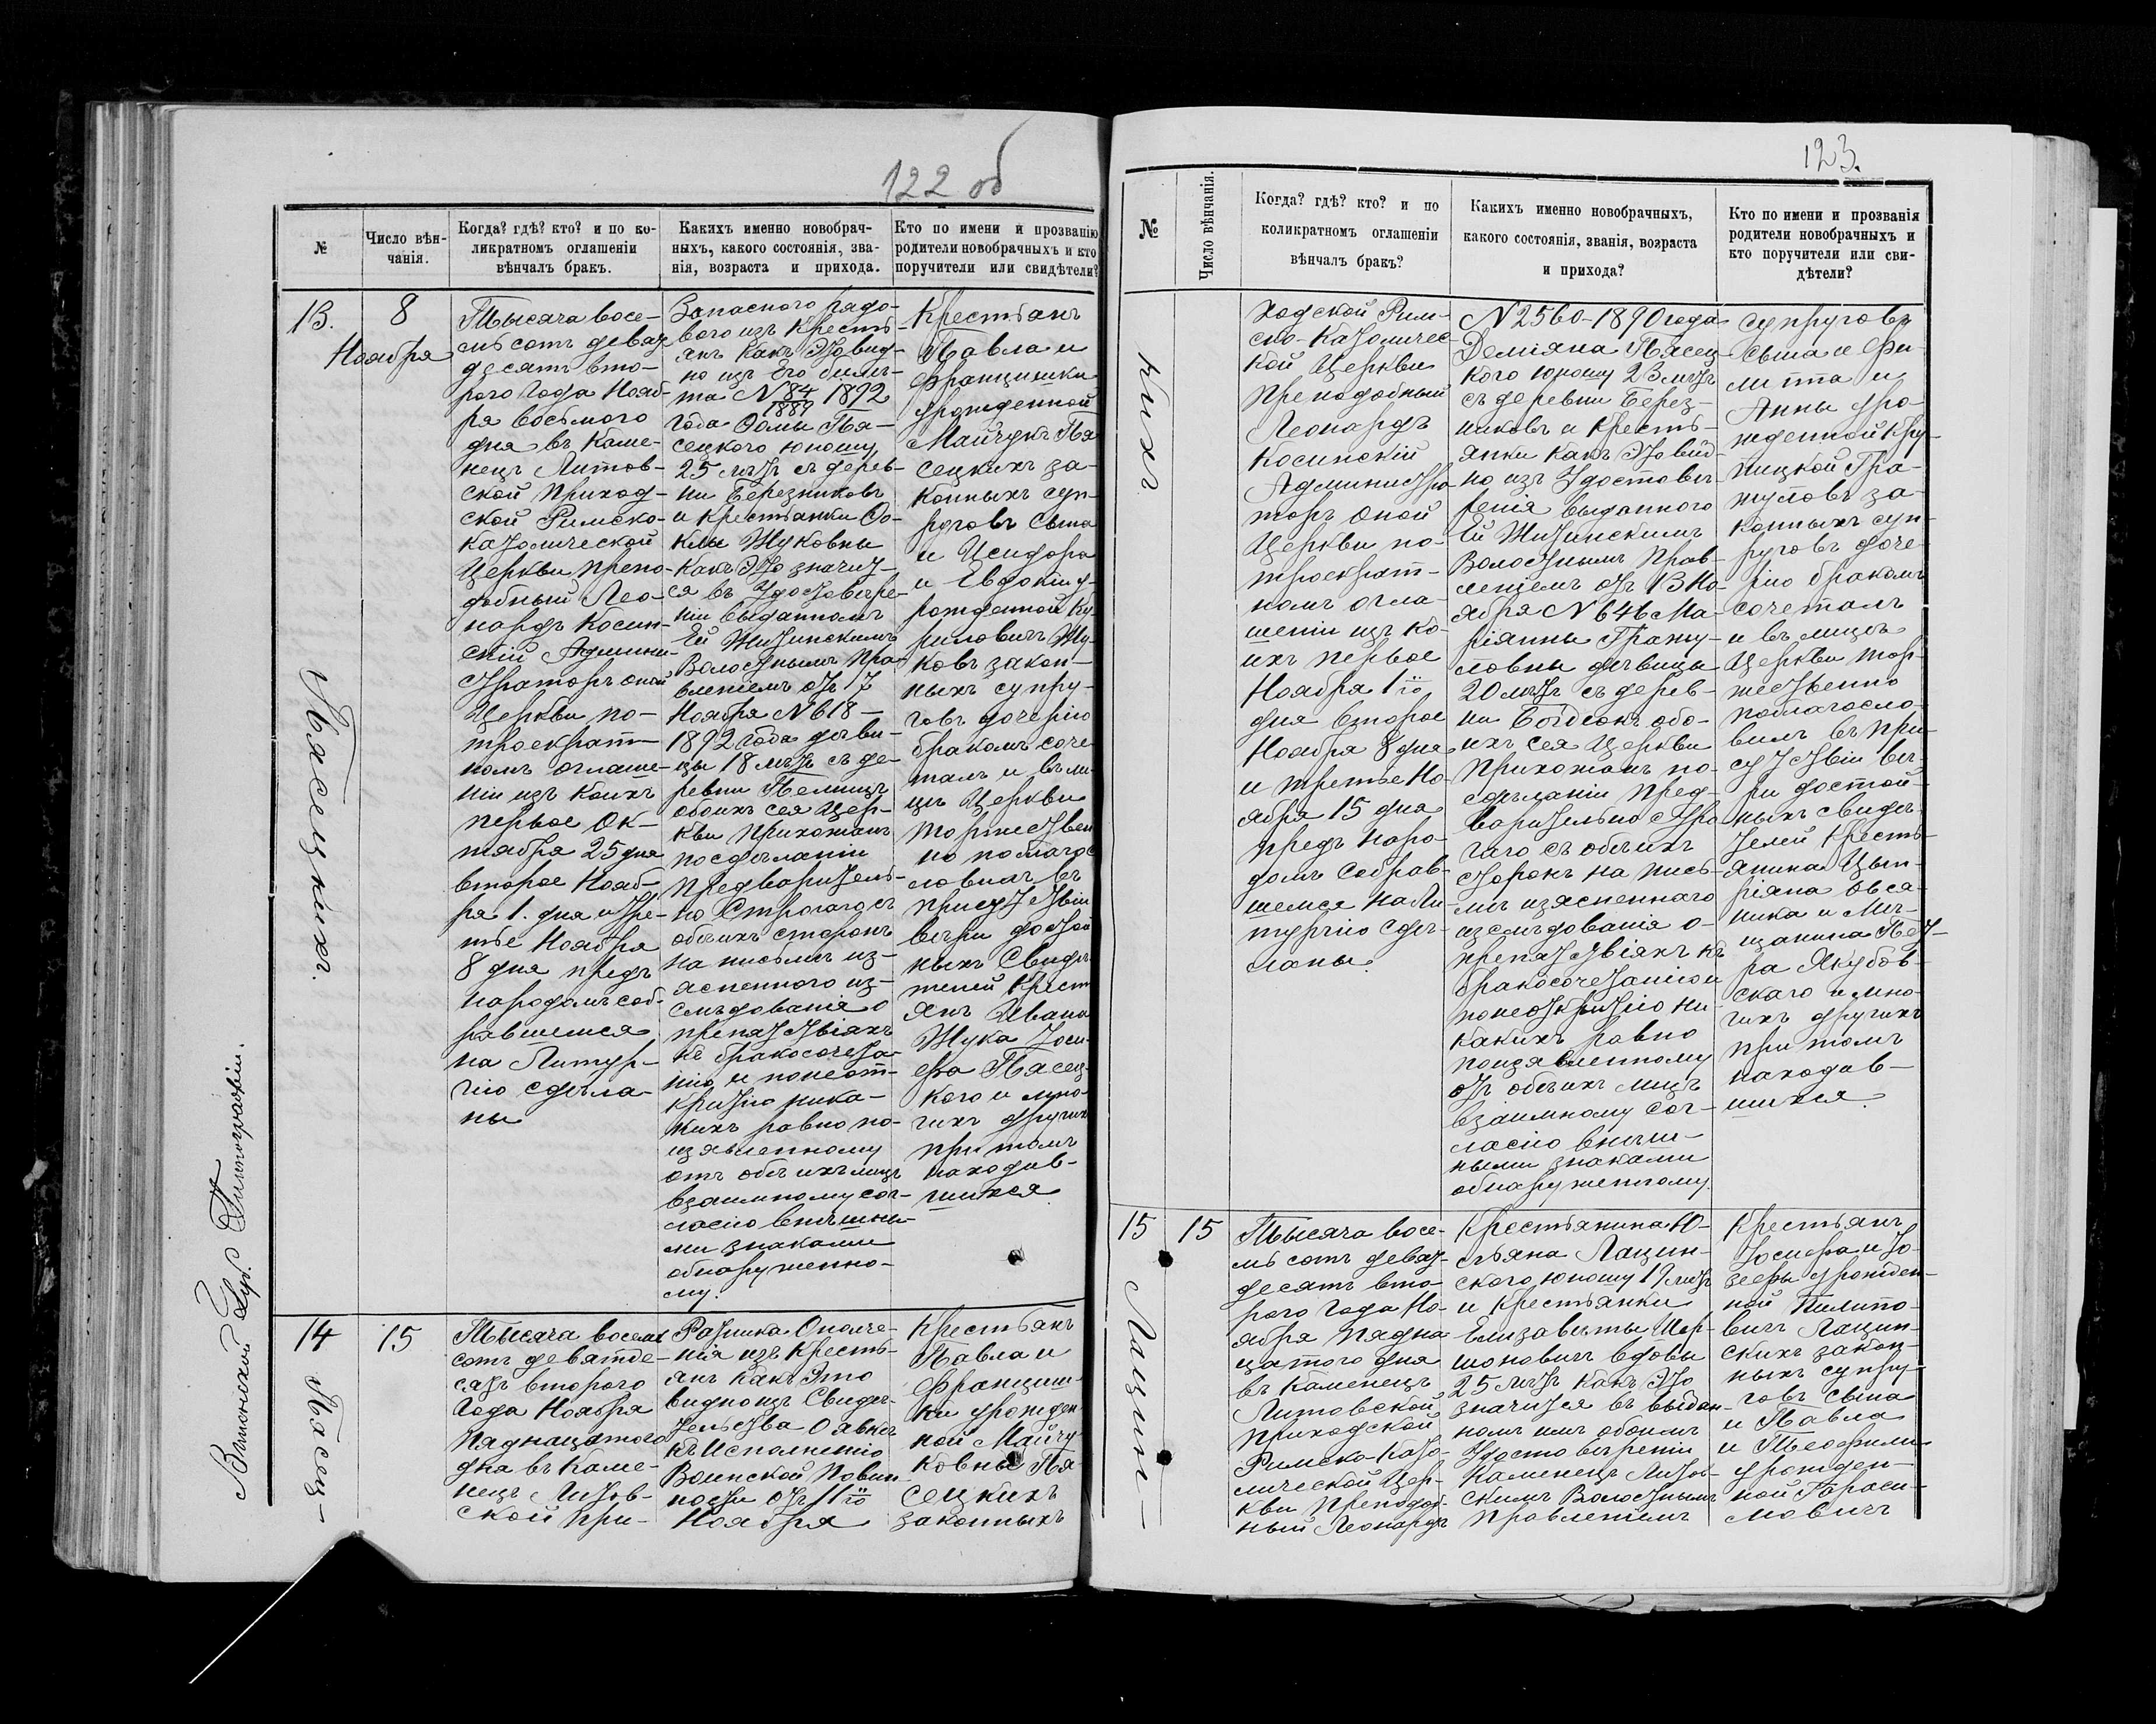 122 об
№
Число вѣн-
чанія.
Когда? гдѣ? кто? и по ко-
ликратномъ оглашеніи
вѣнчалъ бракъ.
Какихъ именно новобрач-
ныхъ, какого состоянія, зва-
нія, возраста и прихода.
Кто по имени и прозванію
родители новобрачныхъ и кто
поручители или свидѣтели?
13.
8
Ноября
Пясецкихъ.
Тысяча восе-
мь сотъ девят
десятъ вто-
рого года Нояб-
ря восьмого
дня въ Каме-
нецъ Литов-
ской приход-
ской Римско-
католической
Церкви препо-
добный Лео-
нардъ Косин-
скій Админи-
страторъ оной
Церкви по-
троекрат-
номъ оглаше-
ніи изъ коихъ
первое Ок-
тября 25 дня
второе Нояб-
ря 1. дня и тре-
тье Ноября
8 дня предъ
народомъ соб-
равшемся
на Литур-
гію сдѣла-
ны
Запасного рядо-
вого изъ кресть-
янъ какъ это вид-
но изъ его биле-
та № 84/1889 1892
года Фомы Пя-
сецкого юношу
25 лѣтъ съ дерев-
ни Березниковъ
и крестьянки Фо-
клы Жуковны
какъ это значит-
ся въ удостовѣре-
ніи выданномъ
ей Жицинскимъ
Волостнымъ Пра-
вленіемъ отъ 17
Ноября № 618 —
1892 года дѣви-
цы 18 лѣтъ съ де-
ревни Пелищъ
обоихъ сея Цер-
кви прихожанъ
по сдѣланіи
предваритель-
но строгаго съ
обѣихъ сторонъ
на письмѣ из-
ясненного из-
слѣдованія о
препятствіяхъ
къ бракосочета-
нію и понеот-
крытію ника-
кихъ равно по-
изявленному
отъ обѣихъ лицъ
взаимному сог-
ласію внѣшны-
ми знаками
обнаруженно-
му.
Крестьянъ
Павла и
Францишки
урожденной
Майчукъ Пя
сецкихъ за-
конныхъ суп-
руговъ сына
и Исидора
и Евдокіи у-
рожденной Ки
риловичъ Жу-
ковъ закон-
ныхъ супру-
говъ дочерію
бракомъ соче
талъ и въ ли-
цѣ Церкви
торжествен
но поблагос
ловилъ въ
присутствіи
вѣры достой
ныхъ свидѣ
телей крест
янъ Ивана
Жука Іоси-
фа Пясец-
кого и мно-
гихъ другихъ
при томъ
находив-
шихся.
14
15
Пясец-
Тысяча восемь
сотъ девятде-
сятъ второго
года Ноября
пяднацатого
дня въ Каме-
нецъ Литов-
ской при-
Ратника Ополче-
нія изъ кресть-
янъ какъ это
видно изъ свидѣ-
тельства о явкѣ
къ исполненію
Воинской повин-
ности отъ 11го
Ноября
Крестьянъ
Павла и
Францишк
ки урожден
ной Майчу
ковны Пя-
сецкихъ
законныхъ
Виленской Губ. Типографіи.
123.
№
Число вѣнчанія.
Когда? гдѣ? кто? и по
коликратномъ оглашеніи
вѣнчалъ бракъ?
Какихъ именно новобрачныхъ,
какого состоянія, званія, возраста
и прихода?
Кто по имени и прозванія
родители новобрачныхъ и
кто поручители или сви-
дѣтели?
кихъ
ходской Рим-
ско-Католичес
кой Церкви
преподобный
Леонардъ
Косинскій
Администра
торъ оной
Церкви по-
троекрат-
номъ огла-
шеніи изъ ко-
ихъ первое
Ноября 1го
дня второе
Ноября 8 дня
и третье Но
ября 15 дня
предъ наро-
домъ собрав-
шемся на Ли-
тургію сдѣ-
ланы.
№ 2560-1890 года
Деміяна Пясец-
кого юношу 23 лѣтъ
съ деревни Берез-
никовъ и кресть-
янки какъ это вид-
но изъ удостовѣ-
ренія выданного
ей Жицинскимъ
Волостнымъ Прав-
леніемъ отъ 13 Но-
ября № 646 Ма-
ріянны Гражу-
ловны дѣвицы
20 лѣтъ съ дерев-
ни обо-
ихъ сея Церкви
прихожанъ по-
сдѣланіи пред-
варительно стро
гаго съ обѣихъ
сторонъ на пись-
мѣ изясненнаго
изслѣдованія о-
препятствіяхъ къ
бракосочетанію и
понеоткрытію ни-
какихъ равно
поизявленному
отъ обѣихъ лицъ
взаимному сог-
ласію внѣш-
ными знаками
обнаруженному.
супруговъ
сына и Фи-
липпа и
Анны уро-
жденной Кру-
пицкой Гра-
жуловъ за-
конныхъ суп-
руговъ доче-
рію бракомъ
сочеталъ
и въ лицѣ
Церкви тор-
жественно
поблагосло-
вилъ въ при-
сутствіи вѣ-
ры достой-
ныхъ свидѣ-
телей кресть-
янина Цып-
ріяна Овся-
ника и Мѣ-
щанина Пет-
ра Якубов-
скаго и мно-
гихъ другихъ
при томъ
находив-
шихся.
15
15
Лацин-
Тысяча восе-
мь сотъ девят-
десятъ вто-
рого года Но-
ября пядна
цатого дня
въ Каменецъ
Литовской
приходской
Римско-Като-
лической Цер-
кви преподоб-
ный Леонардъ
Крестьянина Ю-
льяна Лацин-
ского юношу 19 лѣтъ
и крестьянки
Елизаветы Шер-
шоновичъ вдовы
25 лѣтъ какъ это
значится въ выдан-
номъ имъ обоимъ
удостовѣреніи
Каменецъ Литов-
скимъ Волостнымъ
Правленіемъ
Крестьянъ
Іосифа и Іо-
зефы урожден-
ной Пилипо-
вичъ Лацин-
скихъ закон-
ныхъ супру-
говъ сына
и Павла
и Теофили
урожден-
ной Гараси-
мовичъ